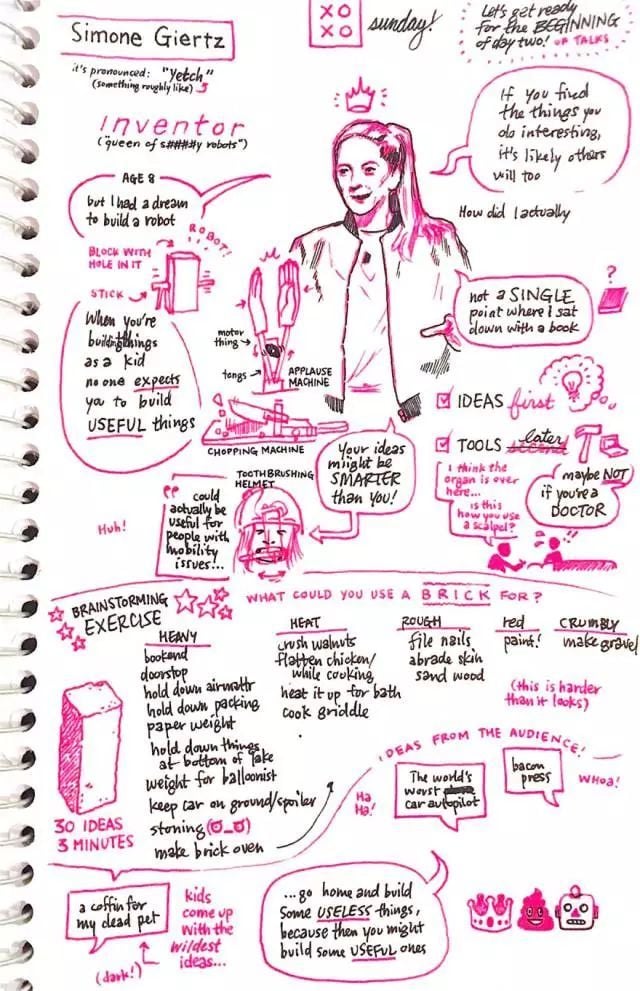 Simone Giertz
it's pronounced: "Yetch"
(something roughly like)
XO
XO
sunday!
Let's get ready
for the BEGINNING
of day two! OF TALKS
Inventor
("queen of s####y robots")
If you find
the things you
do interesting,
it's likely others
will too
AGE 8
but I had a dream
to build a robot
How did I actually
ROBOT!
BLOCK WITH
HOLE IN IT
STICK
not a SINGLE
point where I sat
down with a book
?
When you're
building things
as a kid
no one expects
you to build
USEFUL things
motor
thing
tongs
APPLAUSE
MACHINE
CHOPPING MACHINE
IDEAS first
TOOLS second later
Your ideas
miight be
SMARTER
than You!
I think the
organ is over
here...
is this
how you use
a scalpel?
maybe NOT
if you're a
DOCTOR
TOOTHBRUSHING
HELMET
could
actually be
useful for
people with
mobility
issues...
Huh!
BRAINSTORMING
EXERCISE
WHAT COULD YOU USE A BRICK FOR?
HEAVY
bookend
doorstop
hold down airmattr
hold down packing
paper weight
hold down things
at bottom of lake
weight for balloonist
keep car on ground/spoiler
stoning (ಠ_ಠ)
make brick oven
HEAT
crush walnuts
flatten chicken/
while cooking
heat it up for bath
cook griddle
ROUGH
file nails
abrade skin
sand wood
red
paint!
CRUMBLY
make gravel
(this is harder
than it looks)
30 IDEAS
3 MINUTES
IDEAS FROM THE AUDIENCE!
Ha
Ha!
The world's
worst
car autopilot
bacon
press
WHOA!
a coffin for
my dead pet
(dark!)
kids
come up
with the
wildest
ideas...
...go home and build
some USELESS things,
because then you might
build some USEFUL ones